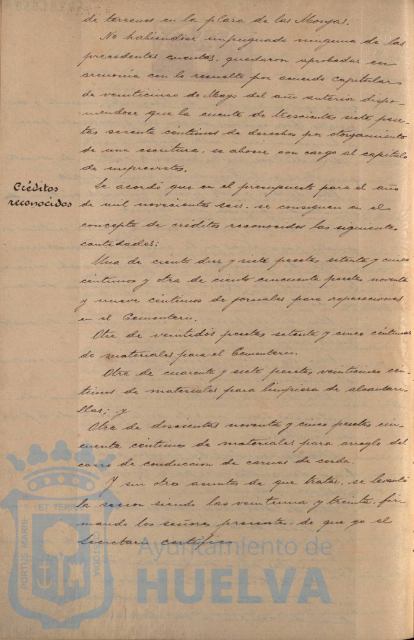 de terrenos en la plaza de las Monjas.
No habiéndose impugnado ninguna de las
precedentes cuentas, quedaron aprobadas en
armonía con lo resuelto por acuerdo capitular
de veinticinco de Mayo del año anterior dispo-
niendose que la cuenta de trescientas siete pese-
tas sesenta céntimos de derechos por otorgamiento
de una escritura, se abone con cargo al capítulo
de imprevistos.
Créditos
reconocidos
Se acordó que en el presupuesto para el año
de mil novecientos seis, se consignen en el
concepto de créditos reconocidos las siguientes
cantidades:
Una de ciento diez y siete pesetas setenta y cinco
céntimos y otra de ciento cincuenta pesetas noventa
y nueve céntimos de jornales para reparaciones
en el Cementerio.
Otra de veintidós pesetas setenta y cinco céntimos
de materiales para el Cementerio.
Otra de cuarenta y siete pesetas veinticinco cén-
timos de materiales para limpieza de alcantari-
llas; y
Otra de doscientas noventa y cinco pesetas cin-
cuenta céntimos de materiales para arreglo del
carro de conduccion de carnes de cerda.
Y sin otro asunto de que tratar, se levantó
la sesion siendo las veintiuna y treinta, fir-
mando los señores presentes, de que yo el
Secretario certifico.
PORTUS MARIS
ET TERRAE
Ayuntamiento de
HUELVA